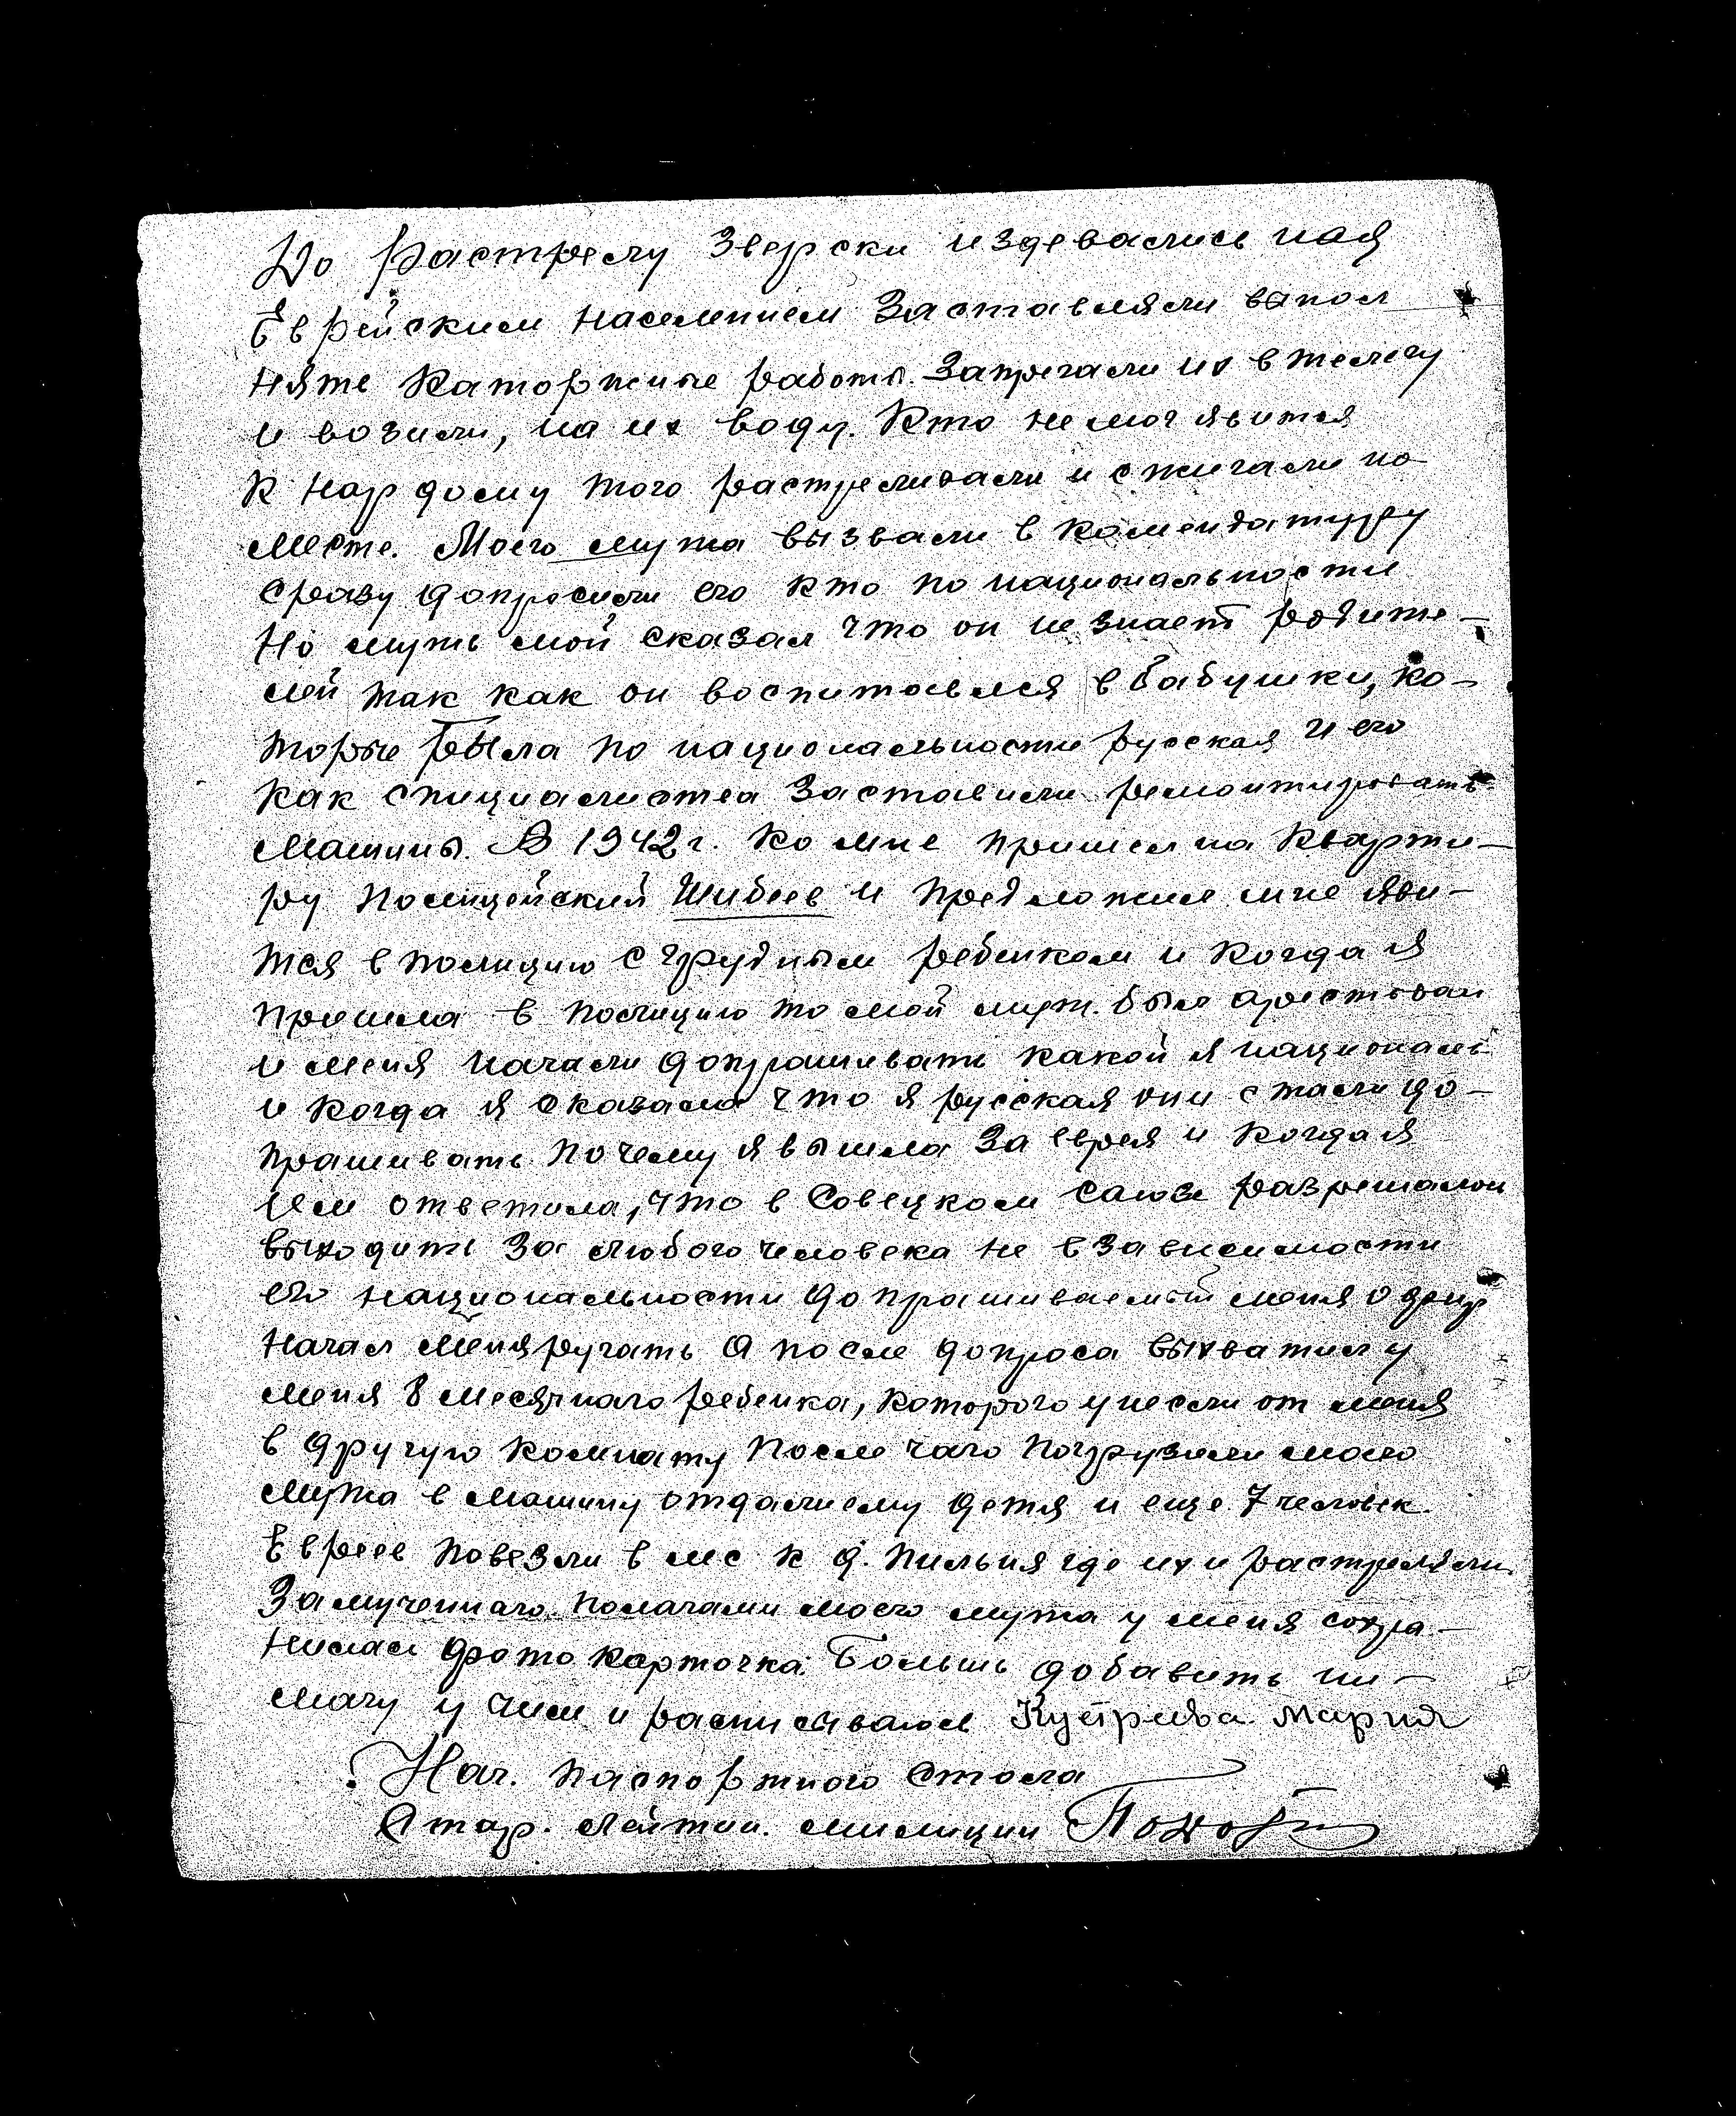 До Растрелу Зверски издевались над
Еврейским населением Заставляли выпол
нять Каторжные работы. Запрегали их в телегу
и возили, на их воду. Кто не мог явится
К нардому того растреливали и сжигали на
месте. Моего мужа вызвали в комендатуру
сразу допросили его кто по национальности
Но мужь мой сказал что он не знает родите-
лей так как он воспитовался в бабушки, ко-
торые была по национальности русская и его
как специалиста заставили ремонтировать
машины. В 1942 г. Ко мне пришел на кварти-
ру полицейский Шибеев и предложил мне яви-
тся в полицию с грудным ребенком и когда я
пришла в полицию то мой муж. был арестован
и меня начали допрашивать какой я националь
и когда я сказала что я русская они стали до-
прашивать почему я вышла за еврея и когда я
им ответила, что в Совецком Саюзе разрешалои
выходить за любого человека не в зависимости
его национальности допрашиваемый меня офицер
начал меня ругать а после допроса выхватил у
меня 8 месячнаго ребенка, которого унесли от меня
в другую комнату после чаго погрузили моего
мужа в машину отдали ему детя и еще 7 человек
Евреев повезли в лес к д. Пильня где их и растреляли
Замученнаго палачами моего мужа у меня сохра-
нилась фото карточка. Больше добавить ни-
магу у чем и расписываюсь Купреева Мария
Нач. паспортного стола
Стар. лейтен. милиции